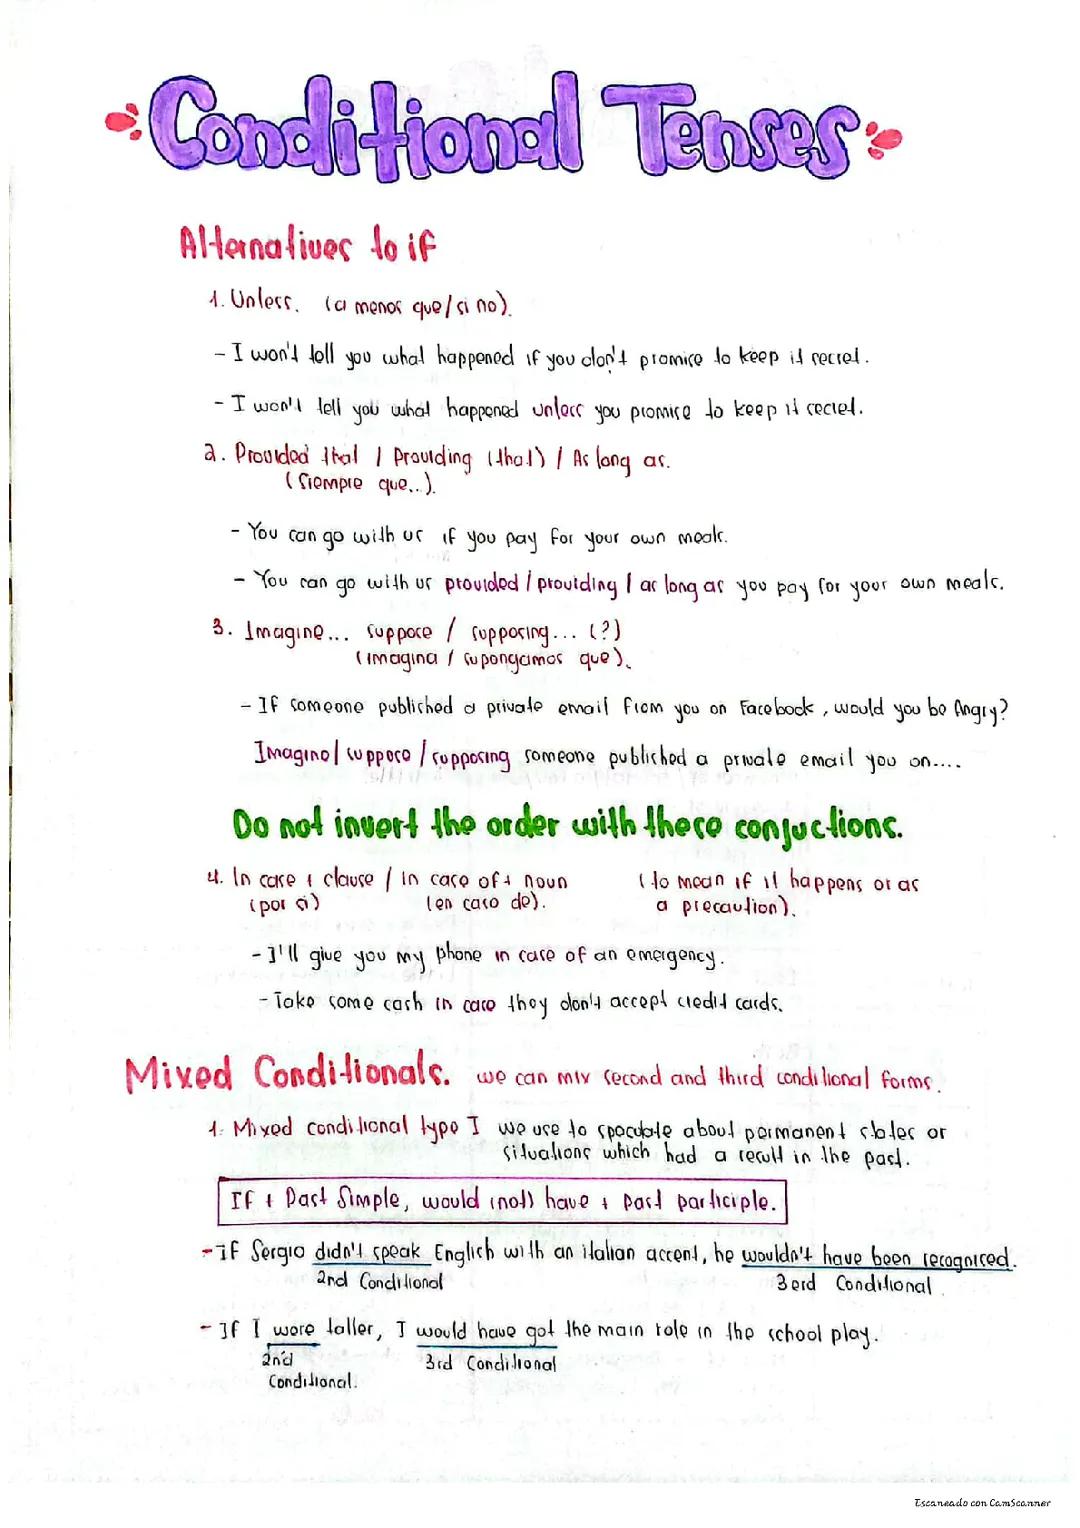 Conditional Tenses
Alternatives to if
1. Unless. (a menos que/si no).
- I won't tell you what happened if you don't promise to keep it secret.
- I won't tell you what happened unless you promise to keep it secret.
2. Provided that / Providing (that) / As long as.
(Siempre que...).
- You can go with us if you pay for your own meals.
- You can go with us provided / providing / as long as you pay for your own meals.
3. Imagine... suppose / supposing... (?)
(imagina / supongamos que).
- If someone published a private email from you on Facebook, would you be Angry?
Imagine/ suppose / supposing someone published a private email you on....
Do not invert the order with these conjuctions.
4. In case + clause / in case of + noun (to mean if it happens or as
(por si) (en caso de). a precaution).
- I'll give you my phone in case of an emergency.
- Take some cash in case they don't accept credit cards.
Mixed Conditionals. we can mix second and third conditional forms.
1. Mixed conditional type I we use to spoculate about permanent states or
situations which had a result in the past.
If + Past Simple, would (not) have + past participle.
- if Sergio didn't speak English with an italian accent, he wouldn't have been recognised.
2nd Conditional 3erd Conditional
- If I were taller, I would have got the main role in the school play.
2nd 3rd Conditional
Conditional.
Escaneado con CamScanner